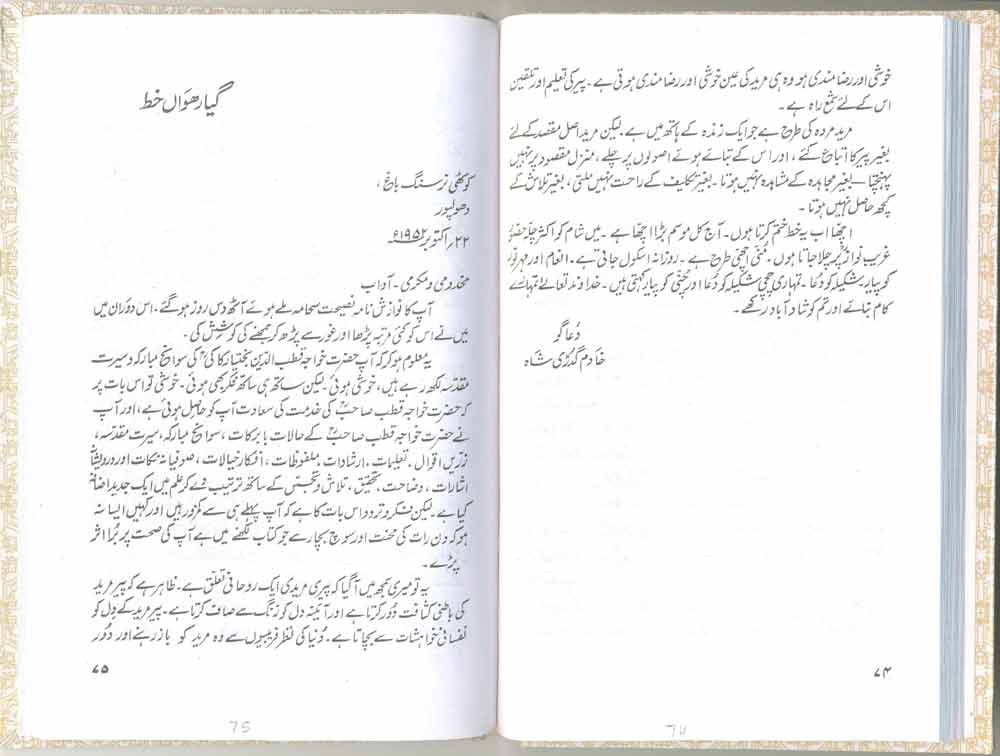 خوشی اور رضا مندی ہو وہ ہی مرید کی عین خوشی اور رضا مندی ہوتی ہے۔ پیر کی تعلیم اور تلقین
اس کے لئے شمع راہ ہے۔
مرید مردہ کی طرح ہے جو ایک زندہ کے ہاتھ میں ہے۔ لیکن مرید اصل مقصد کے لئے
بغیر پیر کا اتباع کئے، اور اس کے بتائے ہوئے اصولوں پر چلے، منزل مقصود پر نہیں
پہنچتا — بغیر مجاہدہ کے مشاہدہ نہیں ہوتا۔ بغیر تکلیف کے راحت نہیں ملتی، بغیر تلاش کے
کچھ حاصل نہیں ہوتا۔
اچھا اب یہ خط ختم کرتا ہوں۔ آج کل موسم بڑا اچھا ہے۔ میں شام کو اکثر چلہ حضور
غریب نوازؒ پر چلا جاتا ہوں۔ مُنی اچھی طرح ہے۔ روزانہ اسکول جاتی ہے۔ انعام اور مہر نور
کو پیار، شکیلہ کو دُعا۔ تمہاری چچی شکیلہ کو دُعا اور مُنی کو پیار کہتی ہیں۔ خداوند تعالےٰ تمہارے
کام بنائے اور تم کو شاد آباد رکھے۔
دُعا گو
خادم گدڑی شاہ
۷۴
74
گیارھواں خط
کوٹھی نرسنگ باغ،
دھولپور
۲۲؍ اکتوبر ۱۹۵۲ء
مخدومی و مکرمی۔ آداب
آپ کا نوازش نامہ نصیحت شمامہ ملے ہوئے آٹھ دس روز ہو گئے۔ اس دَوران میں
میں نے اس کو کئی مرتبہ پڑھا اور غور سے پڑھ کر سمجھنے کی کوشش کی۔
یہ معلوم ہو کر کہ آپ حضرت خواجہ قطب الدین بختیار کاکیؒ کی سوانح مبارکہ و سیرت
مقدسہ لکھ رہے ہیں، خوشی ہوئی۔ لیکن ساتھ ہی ساتھ فکر بھی ہوئی۔ خوشی تو اس بات پر
کہ حضرت خواجہ قطب صاحبؒ کی خدمت کی سعادت آپ کو حاصل ہوئی ہے، اور آپ
نے حضرت خواجہ قطب صاحبؒ کے حالات با برکات، سوانح مبارکہ، سیرت مقدسہ،
زریں اقوال۔ تعلیمات، ارشادات، ملفوظات، افکار خیالات، صوفیانہ نکات اور درویشانہ
اشارات، وضاحت، تحقیق، تلاش و تجسس کے ساتھ ترتیب دے کر علم میں ایک جدید اضافہ
کیا ہے۔ لیکن فکر و تردد اس بات کا ہے کہ آپ پہلے ہی سے کمزور ہیں اور کہیں ایسا نہ
ہو کہ دن رات کی محنت اور سوچ بچار سے جو کتاب لکھنے میں ہے آپ کی صحت پر بُرا اثر
پڑے۔
یہ تو میری سمجھ میں آ گیا کہ پیری مریدی ایک روحانی تعلق ہے۔ ظاہر ہے کہ پیر مرید
کی باطنی کثافت دُور کرتا ہے اور آئینہ دل کو زنگ سے صاف کرتا ہے۔ پیر مرید کے دل کو
نفسانی خواہشات سے بچاتا ہے۔ دُنیا کی نظر فریبیوں سے وہ مرید کو باز رہنے اور دُور
۷۵
75